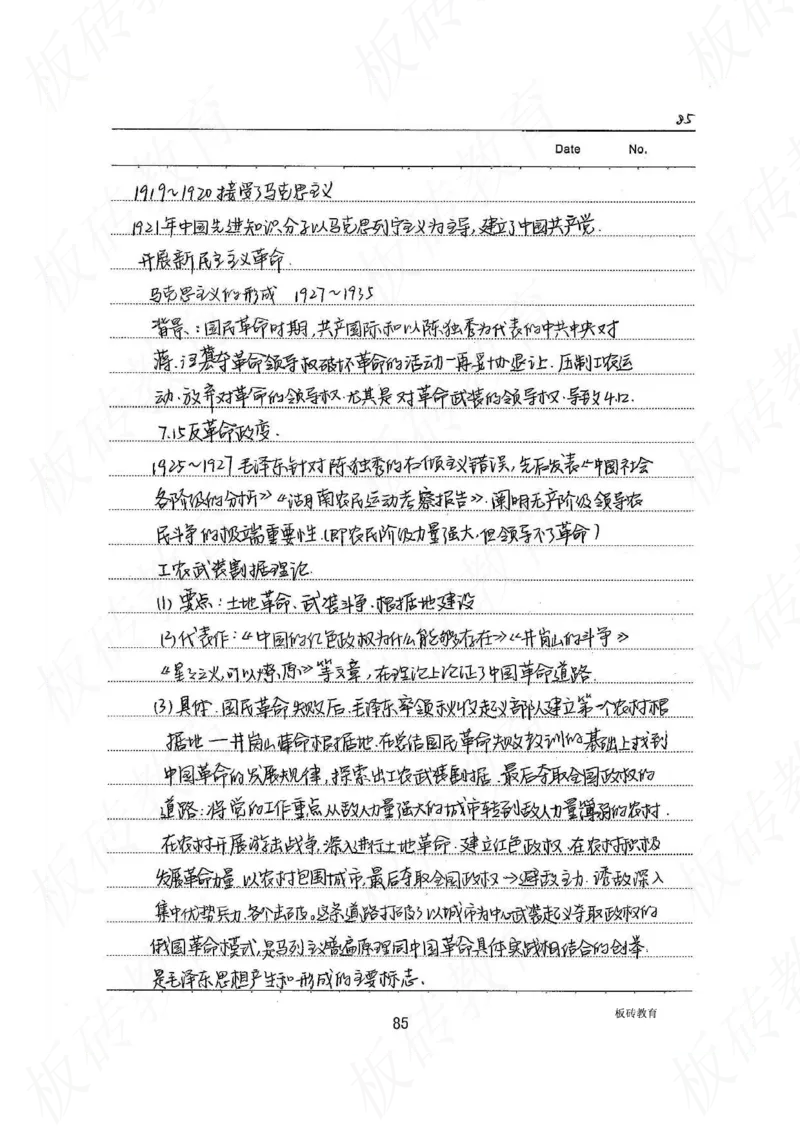 85
Date No.
1919~1920接受了马克思主义
1921年中国先进知识分子以马克思列宁主义为主导,建立了中国共产党.
开展新民主主义革命.
马克思主义的形成 1927~1935
背景:国民革命时期,共产国际和以陈独秀为代表的中共中央对
蒋.汪篡夺革命领导权破坏革命的活动一再妥协退让.压制工农运
动.放弃对革命的领导权.尤其是对革命武装的领导权.导致4.12.
7.15反革命政变.
1925~1927毛泽东针对陈独秀的右倾主义错误,先后发表《中国社会
各阶级的分析》《湖南农民运动考察报告》.阐明无产阶级领导农
民斗争的极端重要性.(即农民阶级力量强大,但领导不了革命)
工农武装割据理论.
(1)要点:土地革命、武装斗争.根据地建设
(2)代表作:《中国的红色政权为什么能够存在》《井岗山的斗争》
《星之火,可以燎原》等文章,在理论上论证了中国革命道路.
(3)具体.国民革命失败后.毛泽东率领秋收起义部队建立第一个农村根
据地—井岗山革命根据地.在总结国民革命失败教训的基础上找到
中国革命的发展规律,探索出工农武装割据.最后夺取全国政权的
道路:将党的工作重点从敌人力量强大的城市转到敌人力量薄弱的农村.
在农村开展游击战争,深入进行土地革命.建立红色政权.在农村积极
发展革命力量.以农村包围城市,最后夺取全国政权→避敌主力.诱敌深入
集中优势兵力.各个击破。这条道路打破了以城市为中心武装起义夺取政权的
俄国革命模式,是马列主义普遍原理同中国革命具体实践相结合的创举.
是毛泽东思想产生和形成的主要标志.
85
板砖教育